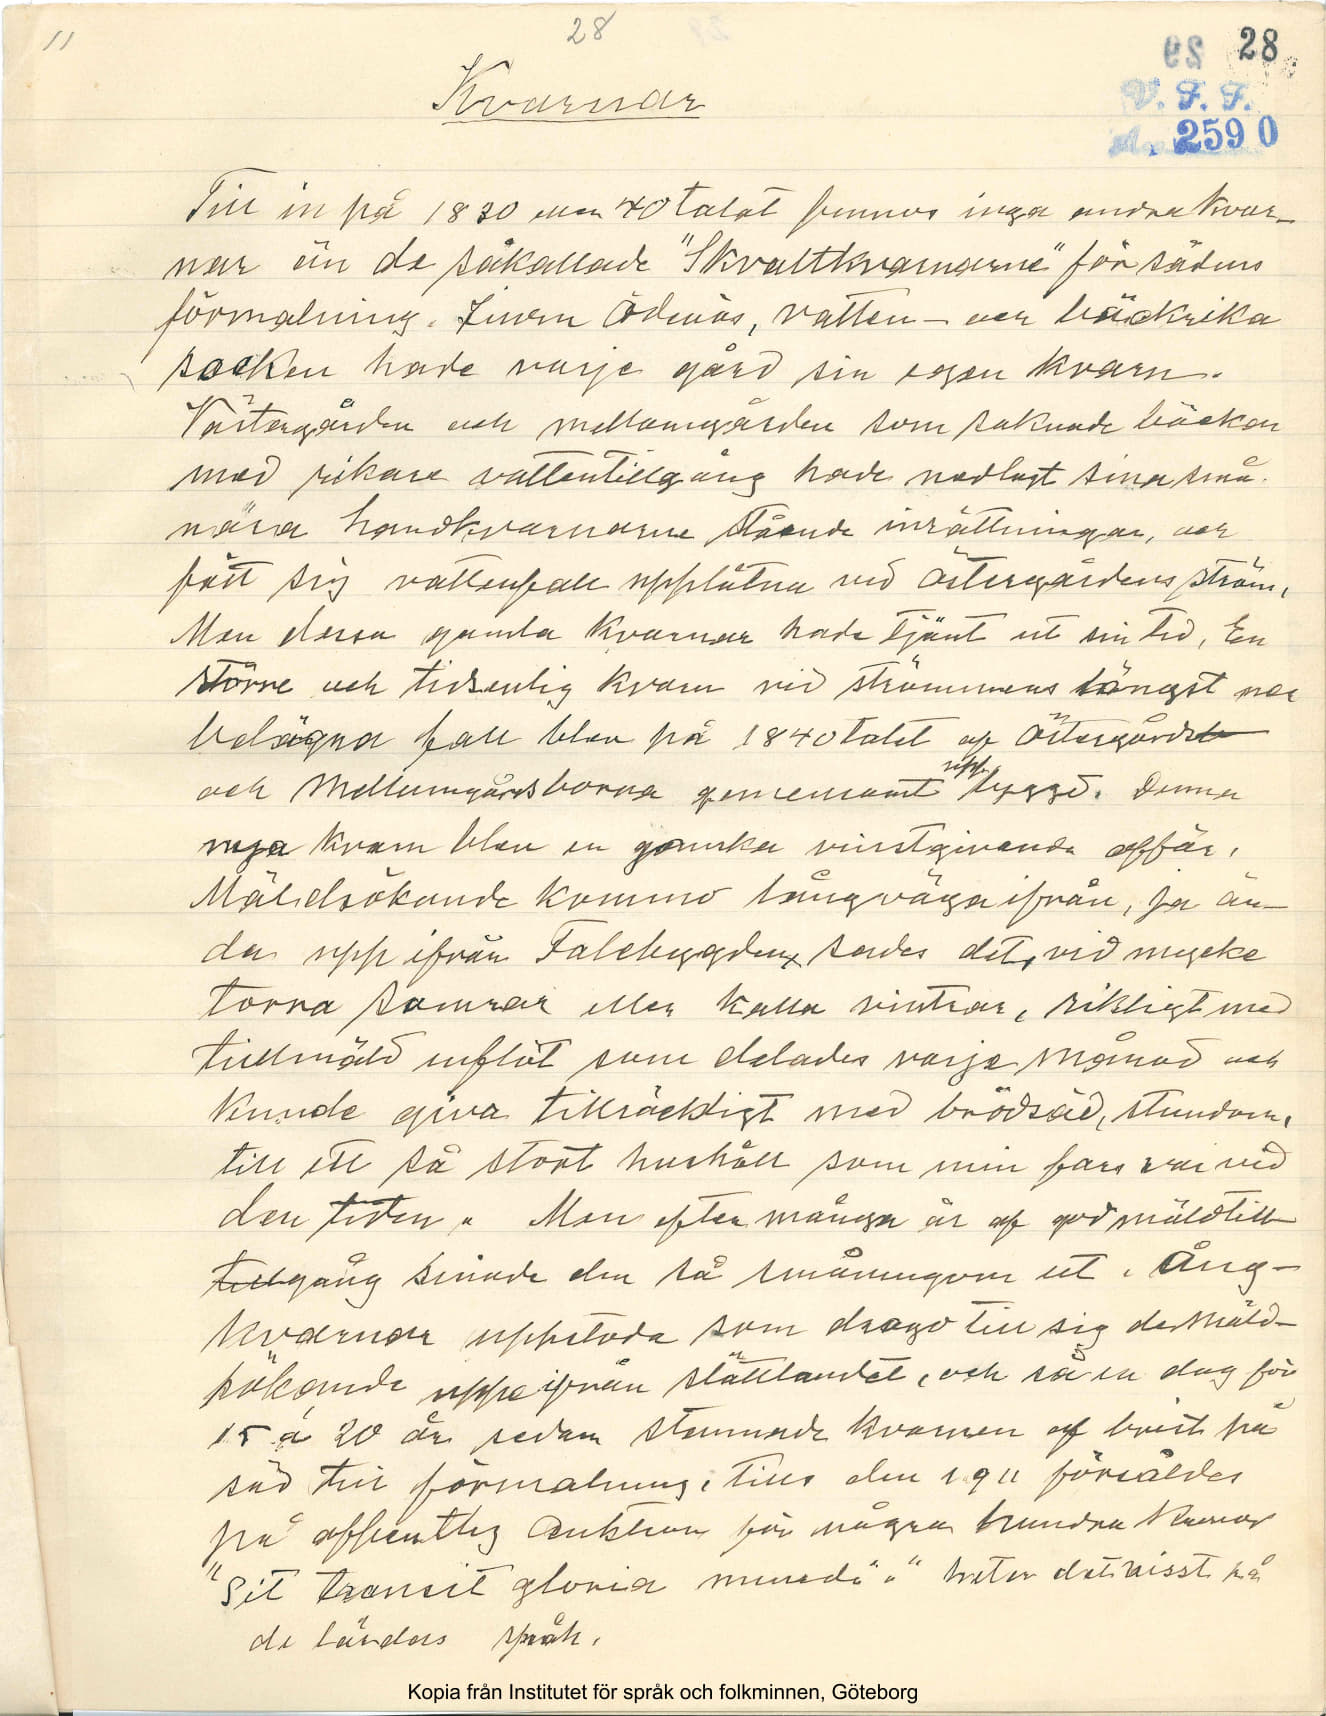 11
28
29 28
V. F. F.
2590
Kvarnar
Till in på 1830 eller 40talet funnos inga andra kvar-
nar än de såkallade "Skvaltkvarnarne" för sädens
förmalning. Inom Ödenäs, vatten- och bäckrika
socken hade varje gård sin egen kvarn.
Västergården och mellomgården som saknade bäckar
med rikare vattentillgång hade nedlagt sina små
nära handkvarnarne stående inrättningar, och
fått sig vattenfall upplåtna vid Östergårdens ström,
Men dessa gamla kvarnar hade tjänt ut sin tid, En
större och tidsenlig kvarn vid strömmens längst ner
belägna fall blev på 1840talet af Östergårds
och Mellomgårdsborna gemensamt uppbyggd. Denna
nya kvarn blev en ganska vinstgivande affär,
Mäldsökande kommo långväga ifrån, ja än-
da upp ifrån Falebygden, sades det, vid mycke
torra somrar eller kalla vintrar, rikligt med
tullmäld inflöt som delades varje månad och
kunde giva tillräckligt med brödsäd, stundom,
till ett så stort hushåll som min fars var vid
den tiden. Men efter många år af god mäldtill-
tillgång sinade den så småningom ut. Ång-
kvarnar uppstodo som drogo till sig de mäld-
sökande uppe ifrån slättlandet, och så en dag för
15 á 20 år sedan stannade kvarnen af brist på
säd till förmalning, tills den 1911 försåldes
på offentlig auktion för några hundra kronor
"Sit transit gloria mundi". heter det visst på
de lärdas språk.
Kopia från Institutet för språk och folkminnen, Göteborg